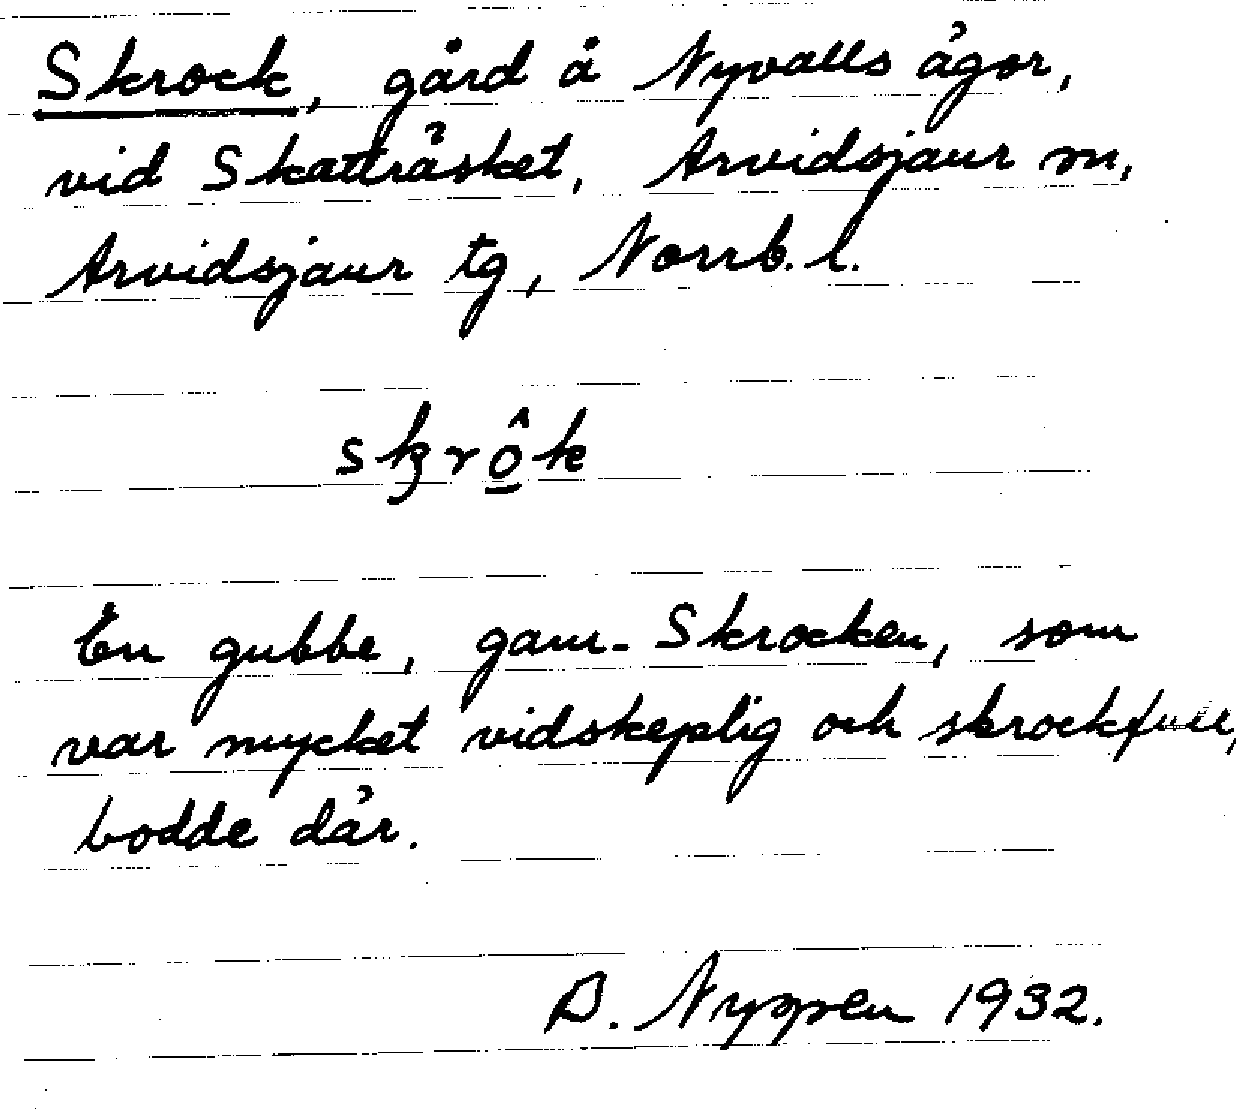 Skrock, gård å Nyvalls ägor,
vid Skatträsket, Arvidsjaur sn,
Arvidsjaur tg, Norrb. l.
skrô̲k
En gubbe, gam-Skrocken, som
var mycket vidskeplig och skrockfull,
bodde där.
1932.